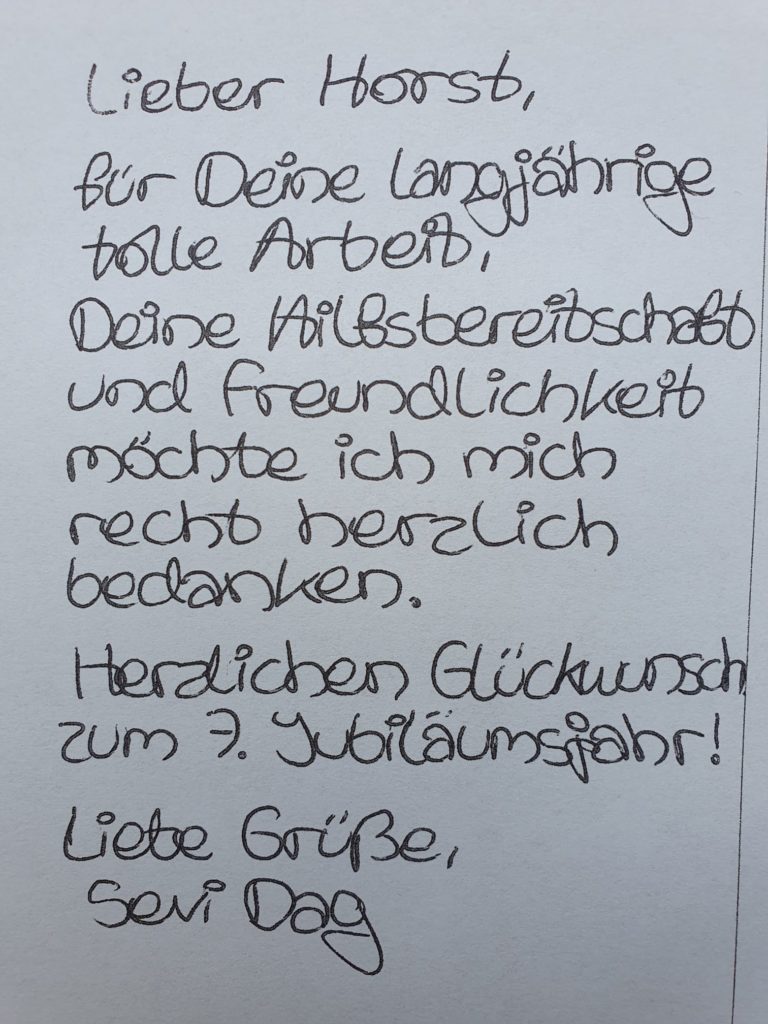 Lieber Horst,
für Deine langjährige
tolle Arbeit,
Deine Hilfsbereitschaft
und Freundlichkeit
möchte ich mich
recht herzlich
bedanken.
Herzlichen Glückwunsch
zum 7. Jubiläumsjahr!
Liebe Grüße,
Sevi Dag